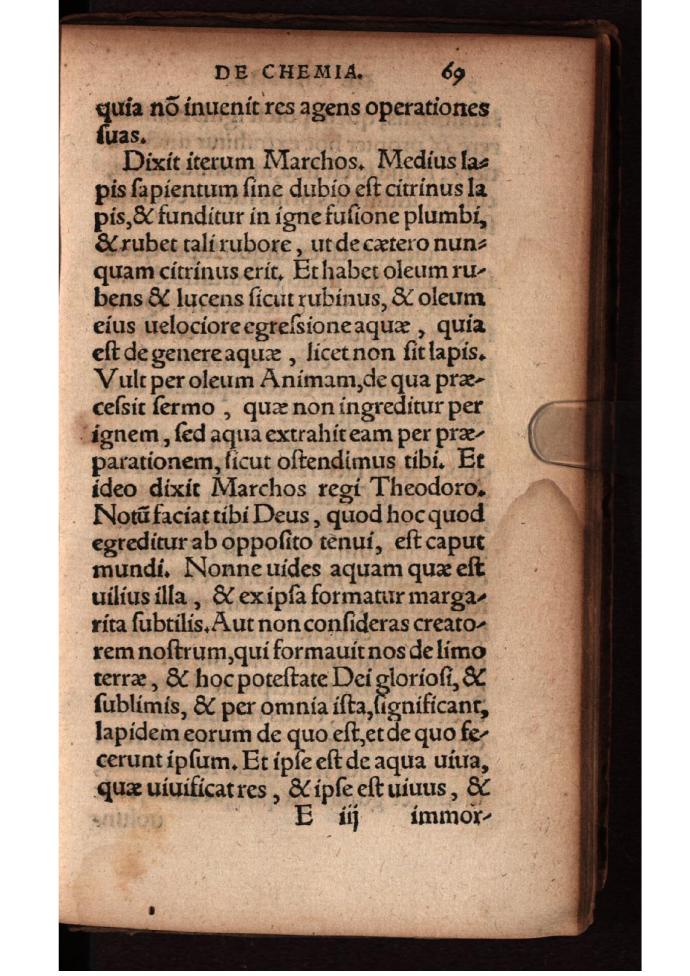 DE CHEMIA. 69
quia nō inuenit res agens operationes
ſuas.
Dixit iterum Marchos. Medius la⸗
pis ſapientum ſine dubio eſt citrinus la
pis,& funditur in igne fuſione plumbi,
& rubet tali rubore, ut de cætero nun⸗
quam citrinus erit. Et habet oleum ru⸗
bens & lucens ſicut rubinus, & oleum
eius uelociore egreſsione aquæ, quia
eſt de genere aquæ, licet non ſit lapis.
Vult per oleum Animam,de qua præ⸗
ceſsit ſermo, quæ non ingreditur per
ignem, ſed aqua extrahit eam per præ⸗
parationem, ſicut oſtendimus tibi. Et
ideo dixit Marchos regi Theodoro.
Notū faciat tibi Deus, quod hoc quod
egreditur ab oppoſito tenui, eſt caput
mundi. Nonne uides aquam quæ eſt
uilius illa, & ex ipſa formatur marga⸗
rita ſubtilis. Aut non conſideras creato⸗
rem noſtrum,qui formauit nos de limo
terræ, & hoc poteſtate Dei glorioſi, &
ſublimis, & per omnia iſta,ſignificant,
lapidem eorum de quo eſt,et de quo fe⸗
cerunt ipſum. Et ipſe eſt de aqua uiua,
quæ uiuificat res, & ipſe eſt uiuus, &
E iij immor⸗